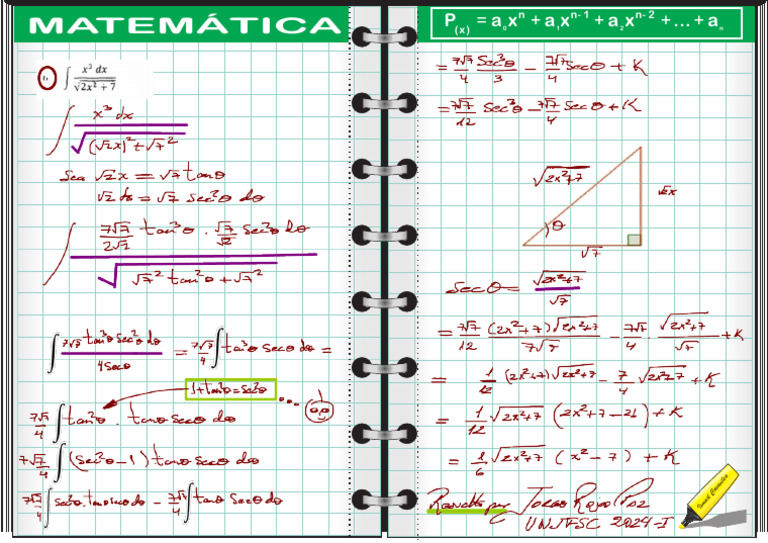 MATEMÁTICA
1. ∫ x³ dx / √(2x² + 7)
∫ x³ dx / √((√2x)² + √7²)
Sea √2x = √7 tanθ
√2 dx = √7 sec²θ dθ
∫ (7√7/2√2) tan³θ · (√7/√2) sec²θ dθ / √(√7² tan²θ + √7²)
∫ 7√7 tan³θ sec²θ dθ / 4 secθ = 7√7/4 ∫ tan³θ secθ dθ =
1 + tan²θ = sec²θ ...
7√7/4 ∫ tan²θ · tanθ secθ dθ
7√7/4 ∫ (sec²θ - 1) tanθ secθ dθ
7√7/4 ∫ sec²θ · tanθ secθ dθ - 7√7/4 ∫ tanθ secθ dθ
P(x) = a₀xⁿ + a₁xⁿ⁻¹ + a₂xⁿ⁻² + ... + aₙ
= 7√7/4 sec³θ/3 - 7√7/4 secθ + K
= 7√7/12 sec³θ - 7√7/4 secθ + K
√(2x²+7)
√2x
θ
√7
secθ = √(2x²+7) / √7
= 7√7/12 (2x²+7)√(2x²+7) / 7√7 - 7√7/4 · √(2x²+7)/√7 + K
= 1/12 (2x²+7)√(2x²+7) - 7/4 √(2x²+7) + K
= 1/12 √(2x²+7) (2x²+7-21) + K
= 1/6 √(2x²+7) (x²-7) + K
Resuelto por
UNJFSC 2024-I